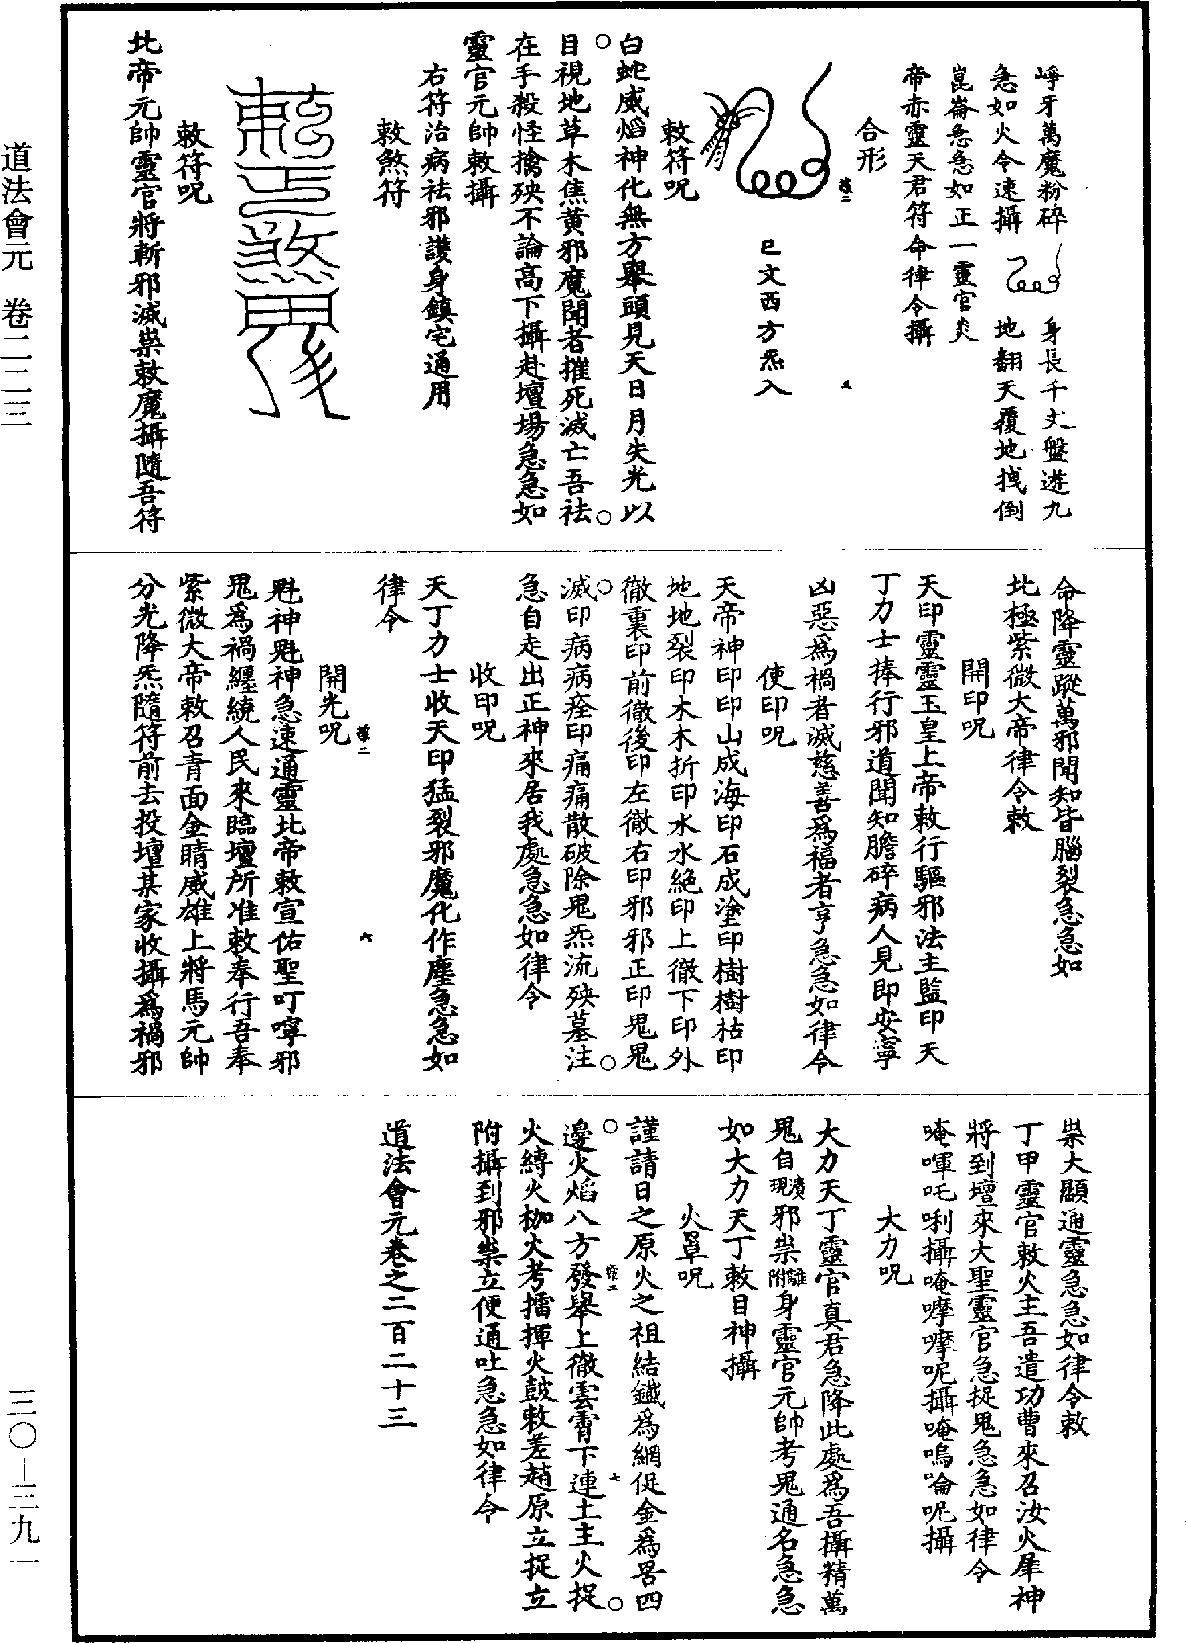 崢牙萬魔粉碎 身長千丈盤遊九
急如火令速攝 地翻天覆地拽倒
崑崙急急如正一靈官炎
帝赤靈天君符命律令攝
合形
巳文西方炁入
敕符呪
白蛇威焰神化無方舉頭見天日月失光以
目視地草木焦黄邪魔聞者摧死滅亡吾祛
在手殺怪擒殃不論高下攝赴壇場急急如
靈官元帥敕攝
右符治病祛邪護身鎮宅通用
敕煞符
敕符呪
北帝元帥靈官將斬邪滅祟敕魔攝隨吾符
命降靈蹤萬邪聞知皆腦裂急急如
北極紫微大帝律令敕
開印呪
天印靈靈玉皇上帝敕行驅邪法主監印天
丁力士捧行邪道聞知膽碎病人見即安寧
凶惡爲禍者滅慈善爲福者亨急急如律令
使印呪
天帝神印印山成海印石成塗印樹樹枯印
地地裂印木木折印水水絶印上徹下印外
徹裏印前徹後印左徹右印邪邪正印鬼鬼
滅印病病痊印痛痛散破除鬼炁流殃墓注
急自走出正神來居我處急急如律令
收印呪
天丁力士收天印猛裂邪魔化作塵急急如
律令
開光呪
魁神魁神急速通靈北帝敕宣佑聖叮嚀邪
鬼爲禍纏繞人民來臨壇所准敕奉行吾奉
紫微大帝敕召青面金睛威雄上將馬元帥
分光降炁隨符前去投壇某家收攝爲禍邪
祟大顯通靈急急如律令敕
丁甲靈官敕火主吾遣功曹來召汝火犀神
將到壇來大聖靈官急捉鬼急急如律令
唵㖸吒唎攝唵嘮嘮呢攝唵嗚㖮呢攝
大力呪
大力天丁靈官真君急降此處爲吾攝精萬
鬼自潰現邪祟離附身靈官元帥考鬼通名急急
如大力天丁敕目神攝
火罩呪
謹請日之原火之祖結鐵爲網促金爲罟四
邊火焰八方發舉上徹雲霄下連土主火捉
火縛火枷火考擂揮火鼓敕差趙原立捉立
附攝到邪祟立便通吐急急如律令
道法會元卷之二百二十三
道法會元 卷二二三
三〇—三九一